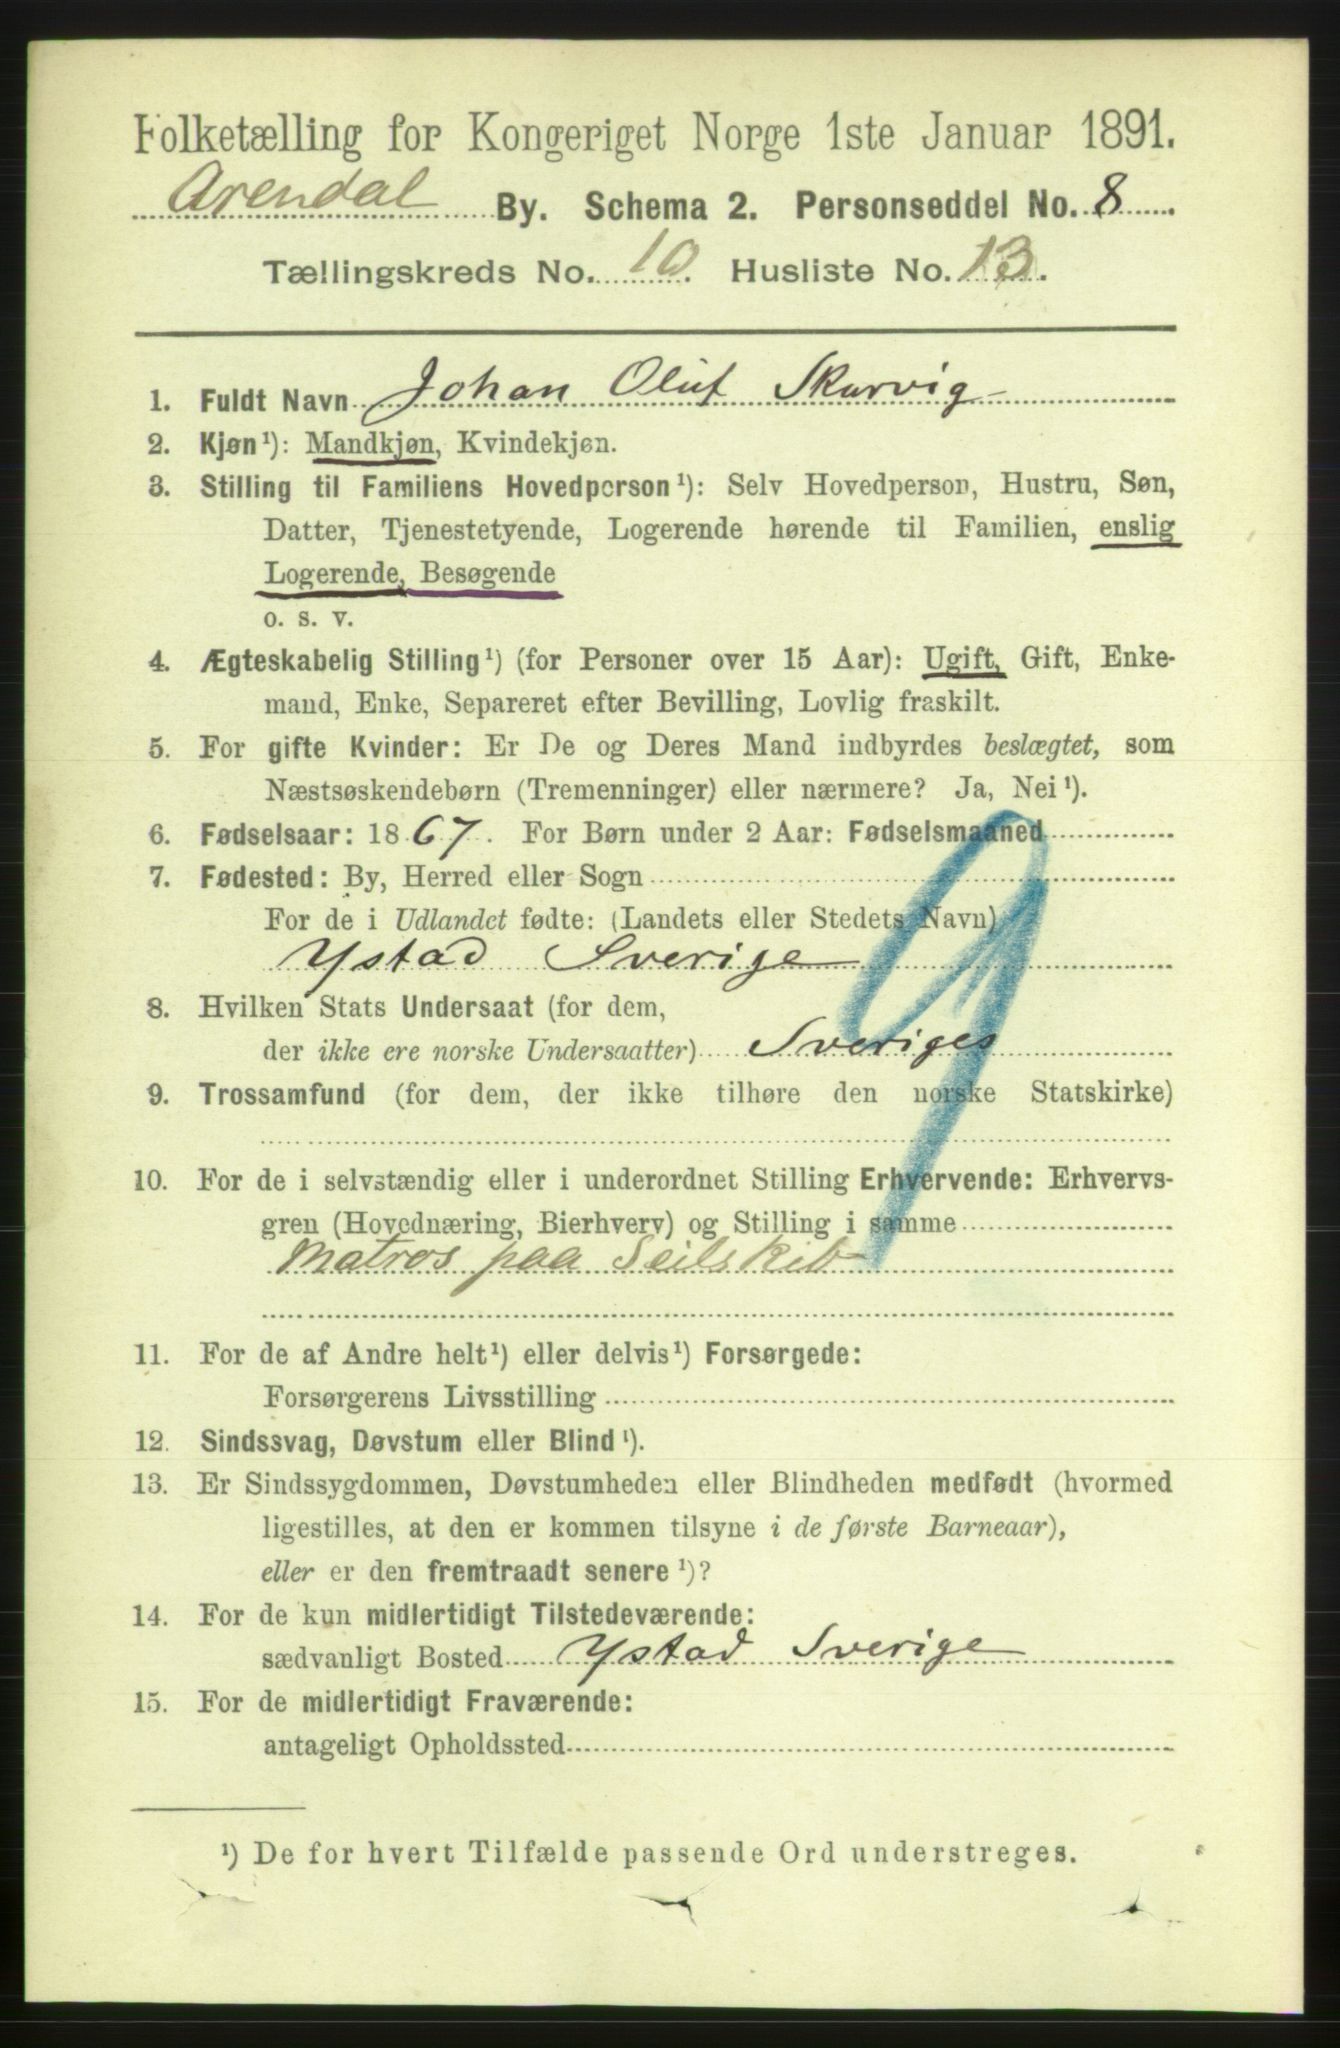 Folketælling for Kongeriget Norge 1ste Januar 1891.
Arendal By. Schema 2. Personseddel No. 8.
Tællingskreds No. 10. Husliste No. 13.
1. Fuldt Navn Johan Oluf Skarvig
2. Kjøn¹): Mandkjøn, Kvindekjøn.
3. Stilling til Familiens Hovedperson¹): Selv Hovedperson, Hustru, Søn,
Datter, Tjenestetyende, Logerende hørende til Familien, enslig
Logerende, Besøgende
o. s. v.
4. Ægteskabelig Stilling¹) (for Personer over 15 Aar): Ugift, Gift, Enke-
mand, Enke, Separeret efter Bevilling, Lovlig fraskilt.
5. For gifte Kvinder: Er De og Deres Mand indbyrdes beslægtet, som
Næstsøskendebørn (Tremenninger) eller nærmere? Ja, Nei¹).
6. Fødselsaar: 1867. For Børn under 2 Aar: Fødselsmaaned
7. Fødested: By, Herred eller Sogn
For de i Udlandet fødte: (Landets eller Stedets Navn)
Ystad Sverige
8. Hvilken Stats Undersaat (for dem,
der ikke ere norske Undersaatter) Sveriges
9. Trossamfund (for dem, der ikke tilhøre den norske Statskirke)
10. For de i selvstændig eller i underordnet Stilling Erhvervende: Erhvervs-
gren (Hovednæring, Bierhverv) og Stilling i samme
Matros paa Seilskib
11. For de af Andre helt¹) eller delvis¹) Forsørgede:
Forsørgerens Livsstilling
12. Sindssvag, Døvstum eller Blind¹).
13. Er Sindssygdommen, Døvstumheden eller Blindheden medfødt (hvormed
ligestilles, at den er kommen tilsyne i de første Barneaar),
eller er den fremtraadt senere¹)?
14. For de kun midlertidigt Tilstedeværende:
sædvanligt Bosted Ystad Sverige
15. For de midlertidigt Fraværende:
antageligt Opholdssted
¹) De for hvert Tilfælde passende Ord understreges.
9